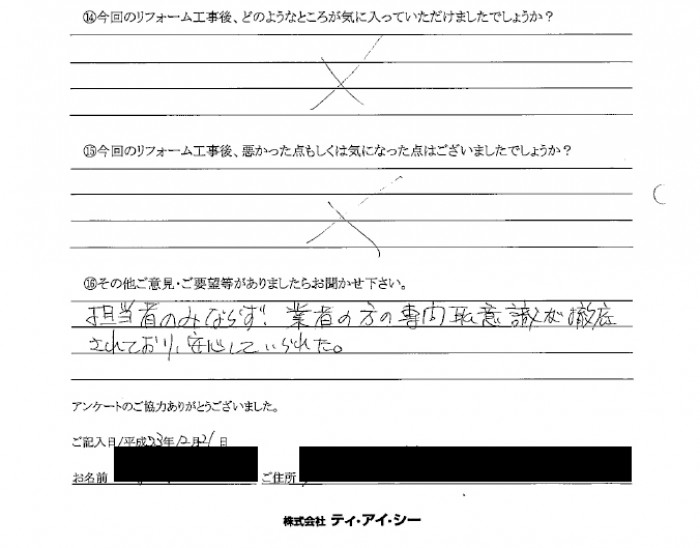 ⑭今回のリフォーム工事後、どのようなところが気に入っていただけましたでしょうか？
⑮今回のリフォーム工事後、悪かった点もしくは気になった点はございましたでしょうか？
⑯その他ご意見・ご要望等がありましたらお聞かせ下さい。
担当者のみならず、業者の方の専門職意識が徹底
されており、安心していられた。
アンケートのご協力ありがとうございました。
ご記入日/平成23年12月21日
お名前 ご住所
株式会社 ティ・アイ・シー